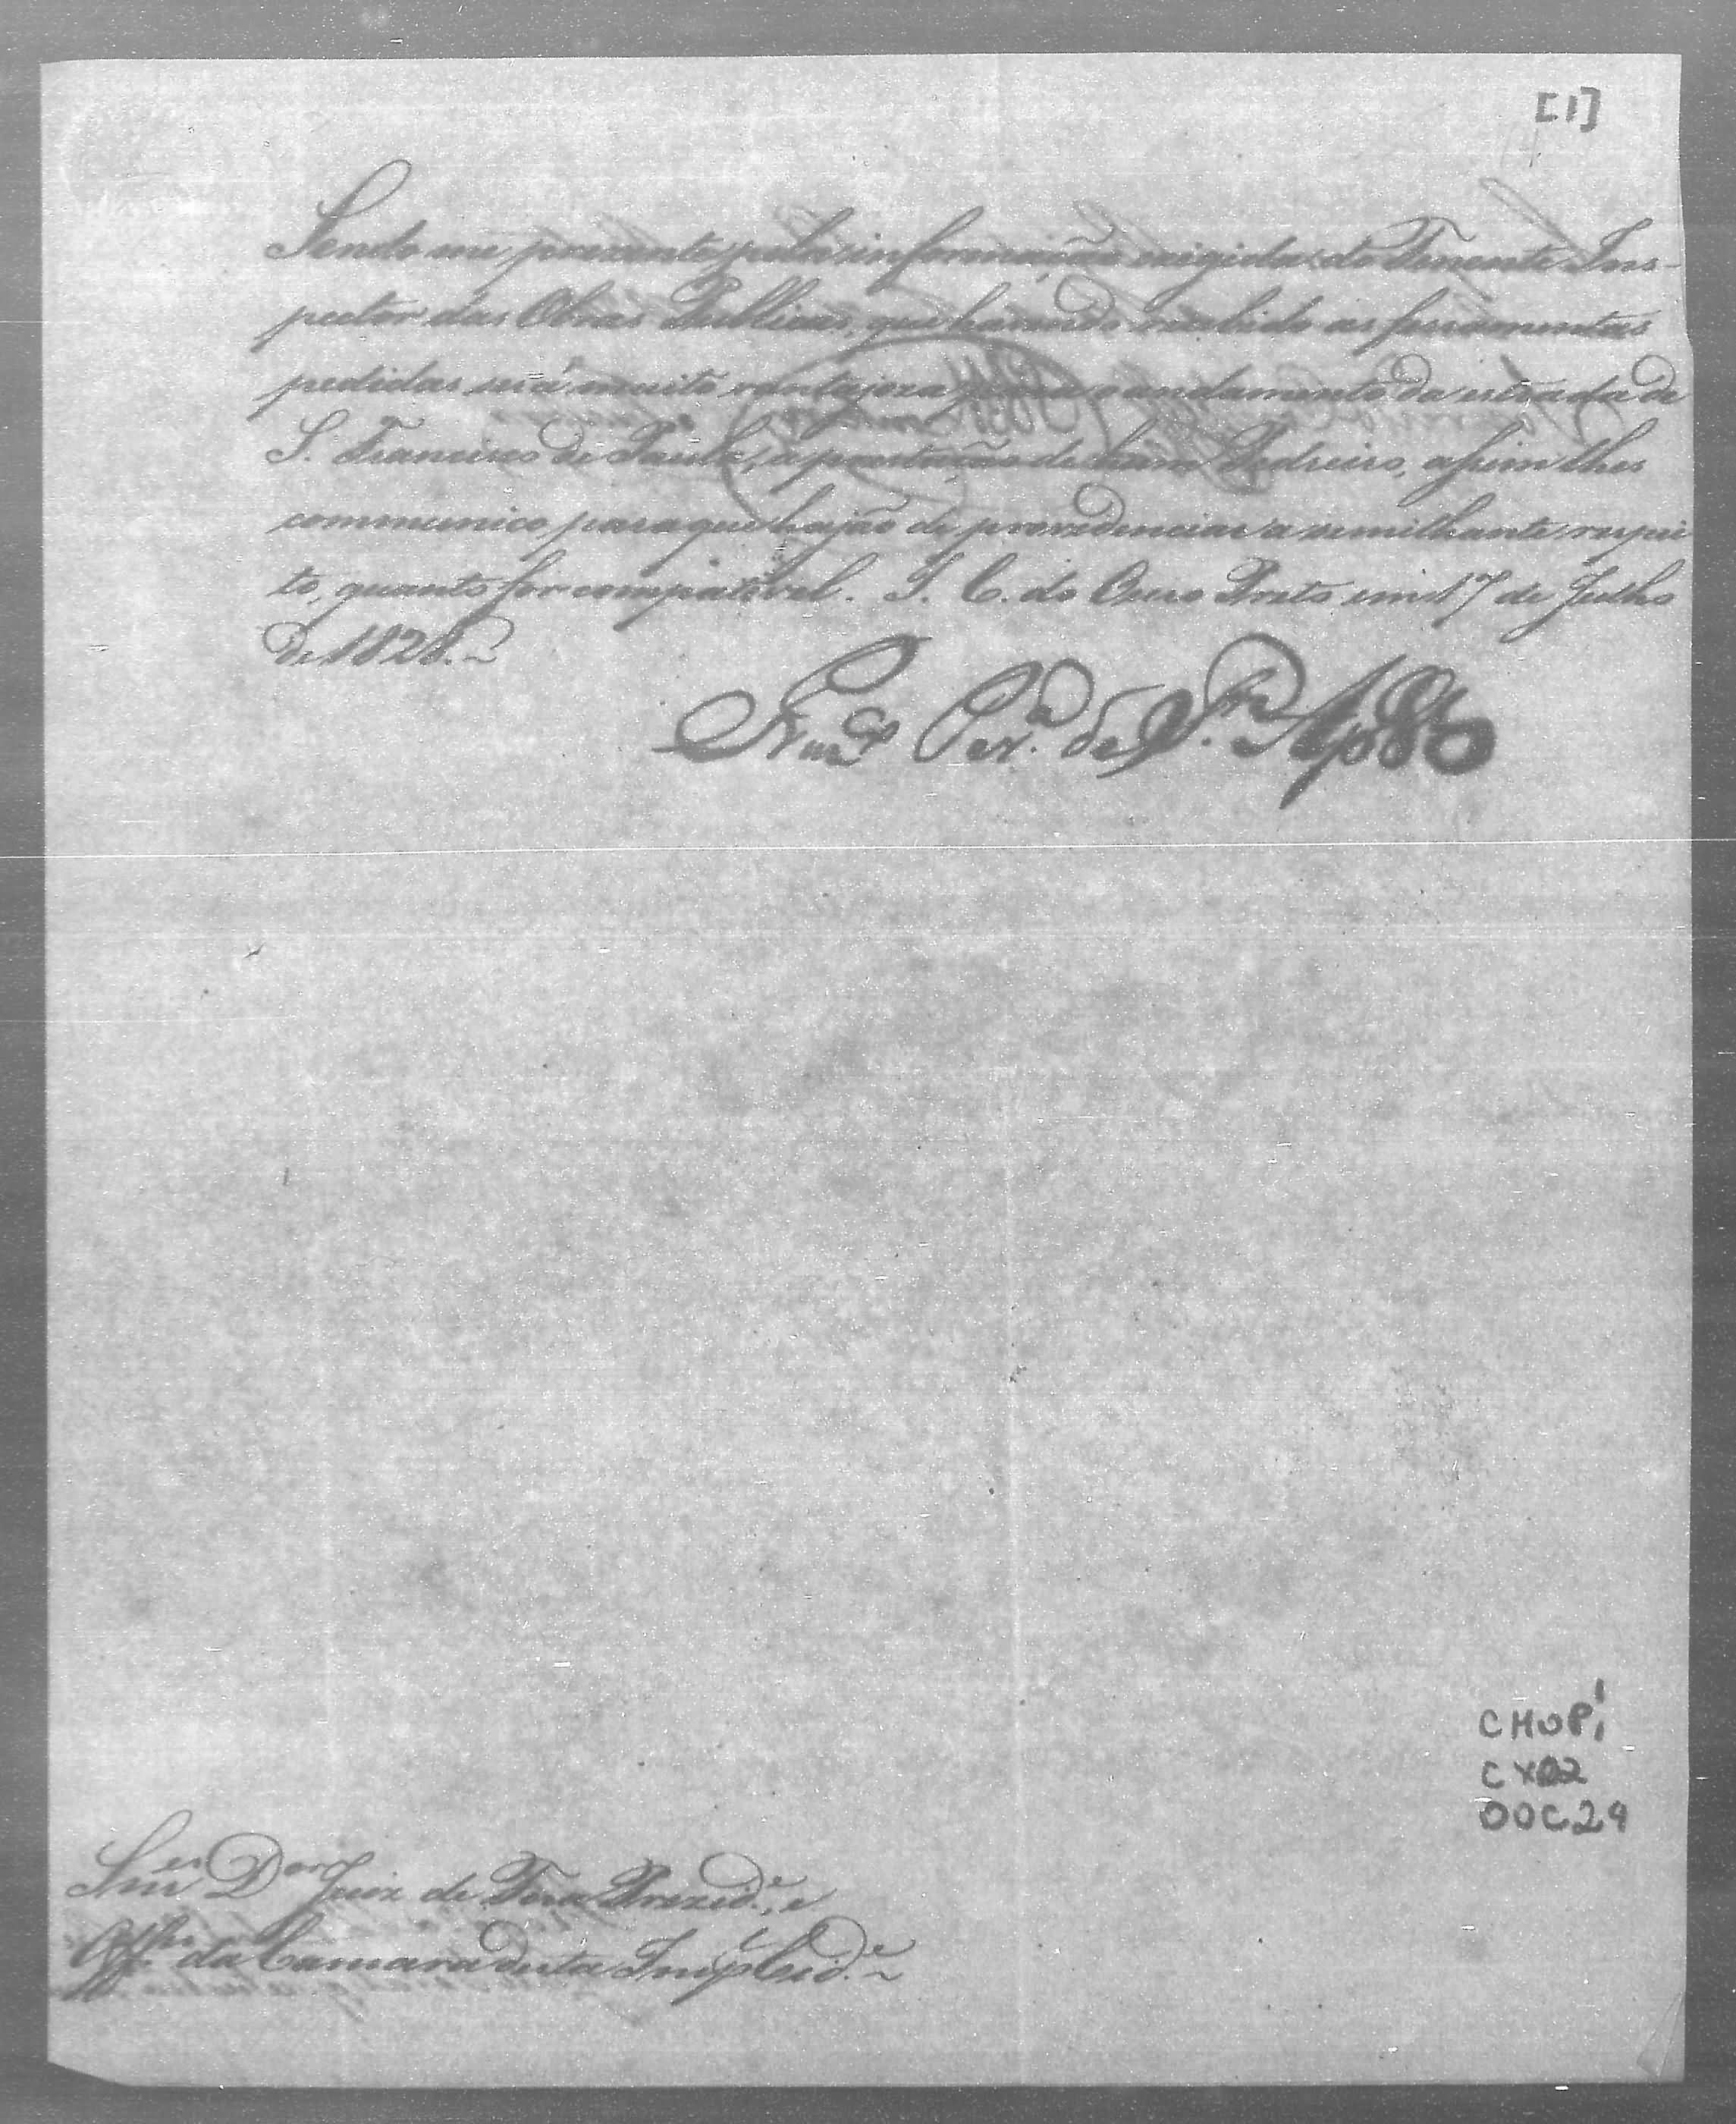 [1]
Sendo me prezente pela informação exigida do Tenente Ins-
pector das Obras Publicas, que havendo recebido as ferramentas
pedidas será muito vantajoza para o andamento da estrada de
S. Francisco de Paula, a prestação de hum Pedreiro, assim lhes
communico para que hajão de providenciar a semilhante respei
to, quanto for compativel. I. C. do Ouro Preto em 17 de Julho
de 1828.~
Per.ª de S.ta
CMOP
CX02
DOC29
Snr.es D.or Juiz de Fora Prezid.e, e
Off.es da Camara desta Imp.l Cid.e~